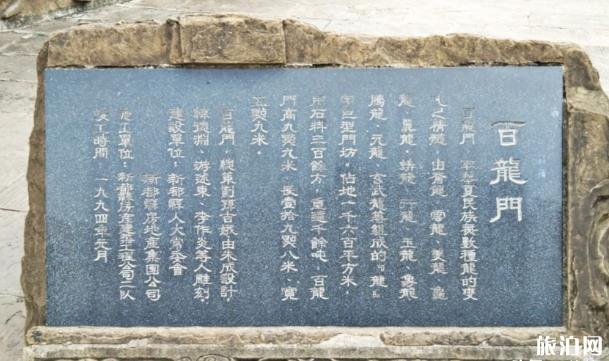 百龍門
百龍門 華夏民族無數種龍的雙
七之情龍 由青龍 雲龍 美龍 龜
龍 異龍 蟒龍 行龍 玉龍 象龍
騰龍 元龍 玄武龍等組成的 龍
字巨型門坊 佔地一千六百平方米
用石料三百餘方 重達千餘吨 百龍
門高九點九米 長壹拾九點八米 寬
五點九米
百龍門 總策劃 吉 由朱成設計
韓德淵 游述東 李作炎等人雕刻
建設單位 新都縣人大常委會
新都縣房地產集團公司
施工單位 新都縣房產建築工程公司二队
竣工時間 一九九四年元月
旅泊网